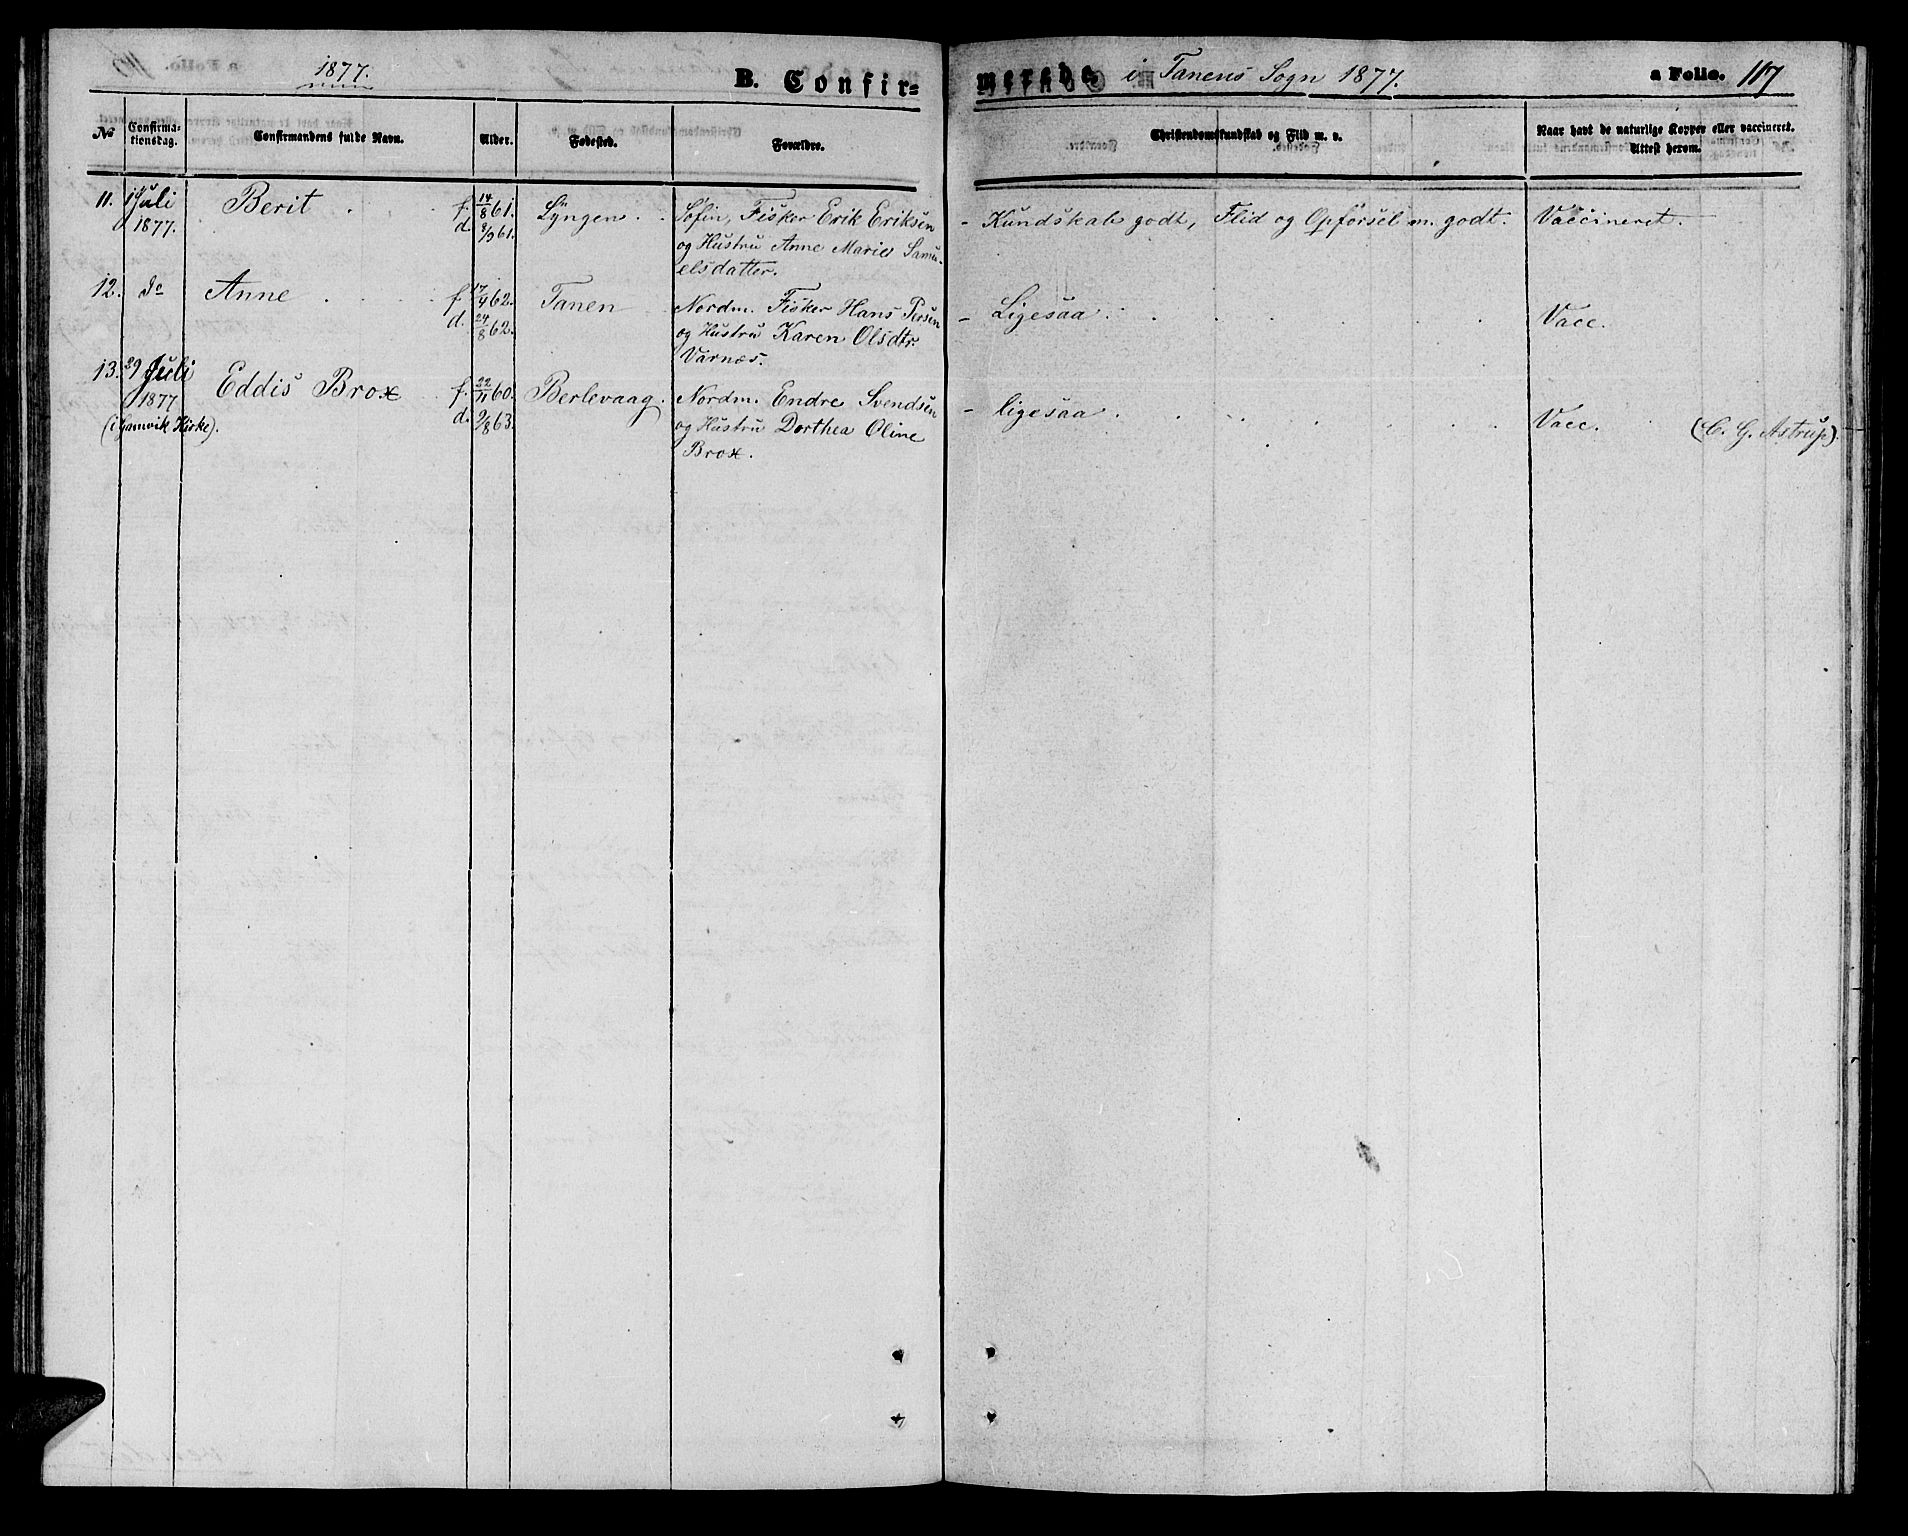 1877.
B. Confir=
merede i Tanens Sogn 1877.
a Folio. 117
No
Confirma-
tionsdag.
Confirmandens fulde Navn.
Alder.
Fødested.
Forældre.
Christendomskundskab og Flid m. v.
Naar havt de naturlige Kopper eller vaccineret.
Attest herom.
11. 1 Juli
1877.
Berit
f. 14/8 61.
d. 8/9 61.
Lyngen
Søfin, Fisker Erik Eriksen
og Hustru Anne Marie Samu-
elsdatter.
- Kundskab godt, Flid og Opførsel m. godt.
Vaccineret.
12. Do
Anne
f. 17/4 62.
d. 24/8 62.
Tanen
Nordm. Fisker Hans Persen
og Hustru Karen Olsdtr.
Varnæs.
- Ligesaa.
Vacc.
13. 29 Juli
1877
(i Gamvik Kirke).
Eddis Brox
f. 22/11 60.
d. 9/8 63.
Berlevaag.
Nordm. Endre Svendsen
og Hustru Dorthea Oline
Brox.
- ligesaa.
Vacc.
(C. G. Astrup).